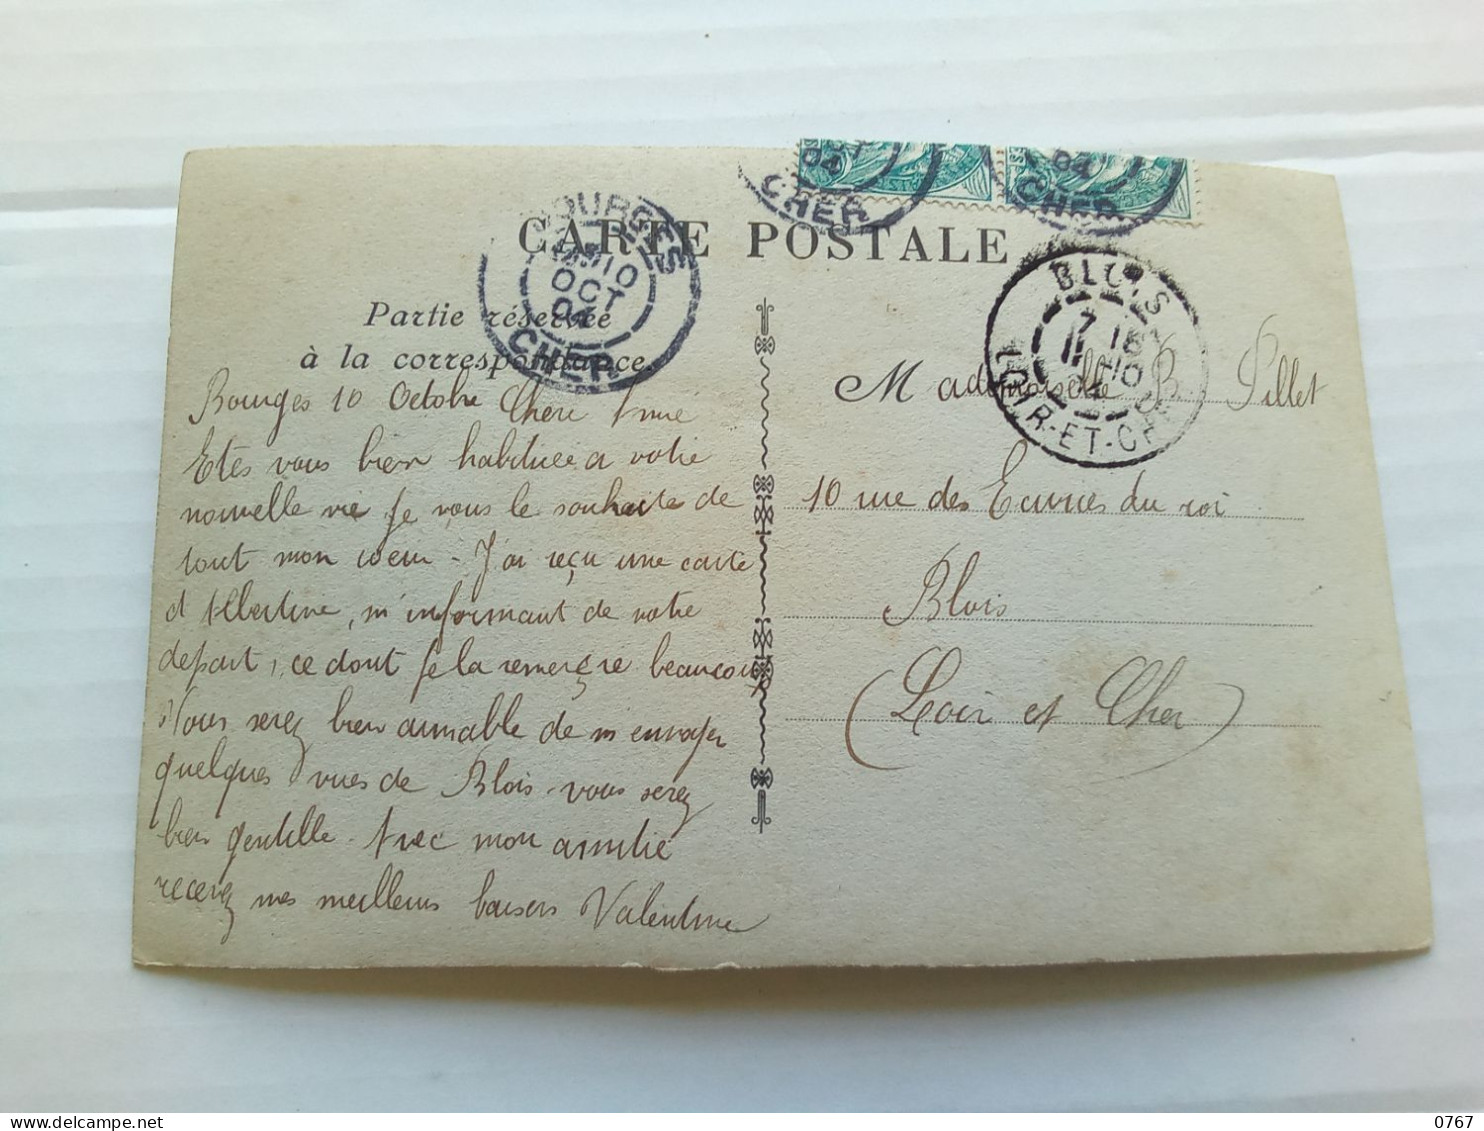 CARTE POSTALE
Partie réservée
à la correspondance.
BOURGES
10
OCT
04
CHER
04
CHER
04
CHER
BLOIS
7 15
11 10
04
LOIR-ET-CHER
Bourges 10 Octobre Chere Aimé
Etes vous bien habituée a votre
nouvelle vie je vous le souhaite de
tout mon coeur - J'ai reçu une carte
d'Albertine, m'informant de votre
depart, ce dont je la remerçie beaucoup
Vous serez bien aimable de m'envoyer
quelques vues de Blois vous serez
bien gentille. Avec mon amitié
recevez mes meilleurs baisers Valentine
Mademoiselle B. Pillet
10 rue des Ecuries du roi
Blois
(Loir et Cher)
0767